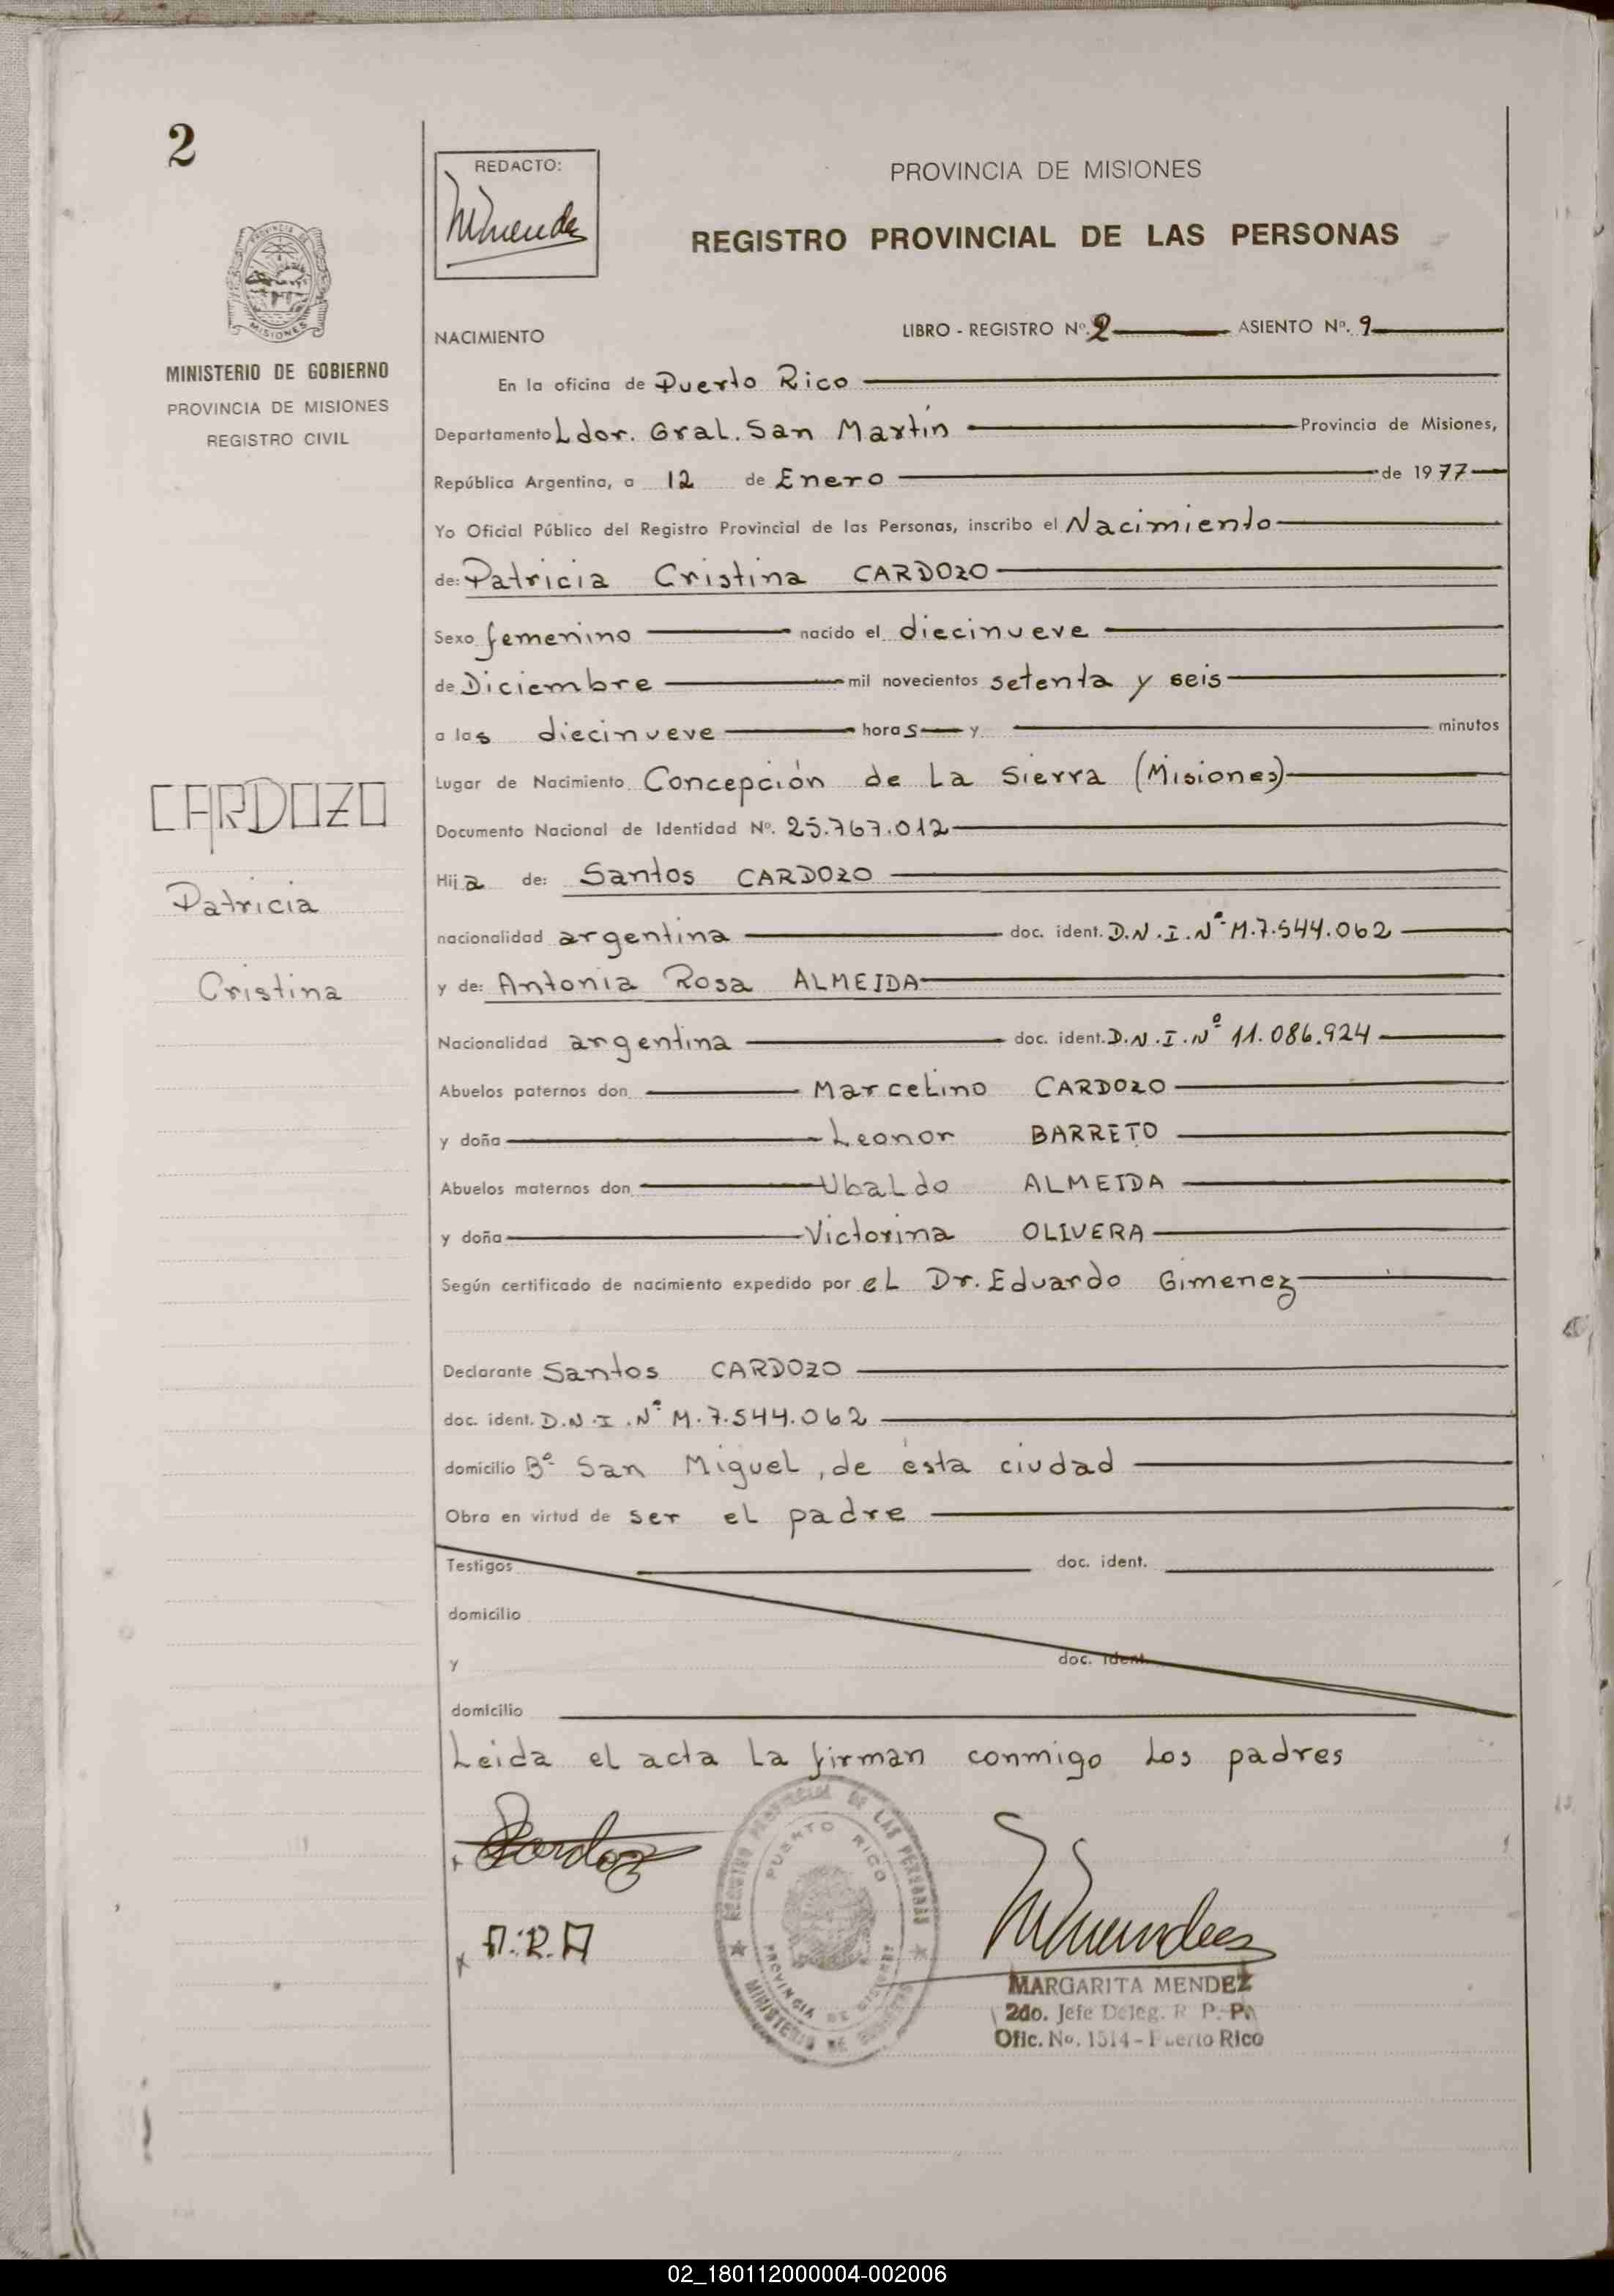 2
MINISTERIO DE GOBIERNO
PROVINCIA DE MISIONES
REGISTRO CIVIL
CARDOZO
Patricia
Cristina
REDACTO:
PROVINCIA DE MISIONES
REGISTRO PROVINCIAL DE LAS PERSONAS
NACIMIENTO LIBRO - REGISTRO Nº. 2 ASIENTO Nº. 9
En la oficina de Puerto Rico
Departamento Ldor. Gral. San Martín Provincia de Misiones,
República Argentina, a 12 de Enero de 1977
Yo Oficial Público del Registro Provincial de las Personas, inscribo el Nacimiento
de: Patricia Cristina CARDOZO
Sexo femenino nacido el diecinueve
de Diciembre mil novecientos setenta y seis
a las diecinueve horas y minutos
Lugar de Nacimiento Concepción de La Sierra (Misiones)
Documento Nacional de Identidad Nº. 25.767.012
Hija de: Santos CARDOZO
nacionalidad argentina doc. ident. D.N.I.Nº M.7.544.062
y de: Antonia Rosa ALMEIDA
Nacionalidad argentina doc. ident. D.N.I.Nº 11.086.924
Abuelos paternos don Marcelino CARDOZO
y doña Leonor BARRETO
Abuelos maternos don Ubaldo ALMEIDA
y doña Victorina OLIVERA
Según certificado de nacimiento expedido por el Dr. Eduardo Gimenez
Declarante Santos CARDOZO
doc. ident. D.N.I.Nº M.7.544.062
domicilio Bº San Miguel, de ésta ciudad
Obra en virtud de ser el padre
Testigos doc. ident.
domicilio
y doc. ident.
domicilio
Leida el acta la firman conmigo los padres
REGISTRO PROVINCIAL DE LAS PERSONAS
PUERTO RICO
PROVINCIA DE MISIONES
MINISTERIO DE GOBIERNO
A.R.A
MARGARITA MENDEZ
2do. Jefe Deleg. R. P. P.
Ofic. No. 1514 - Puerto Rico
02_180112000004-002006